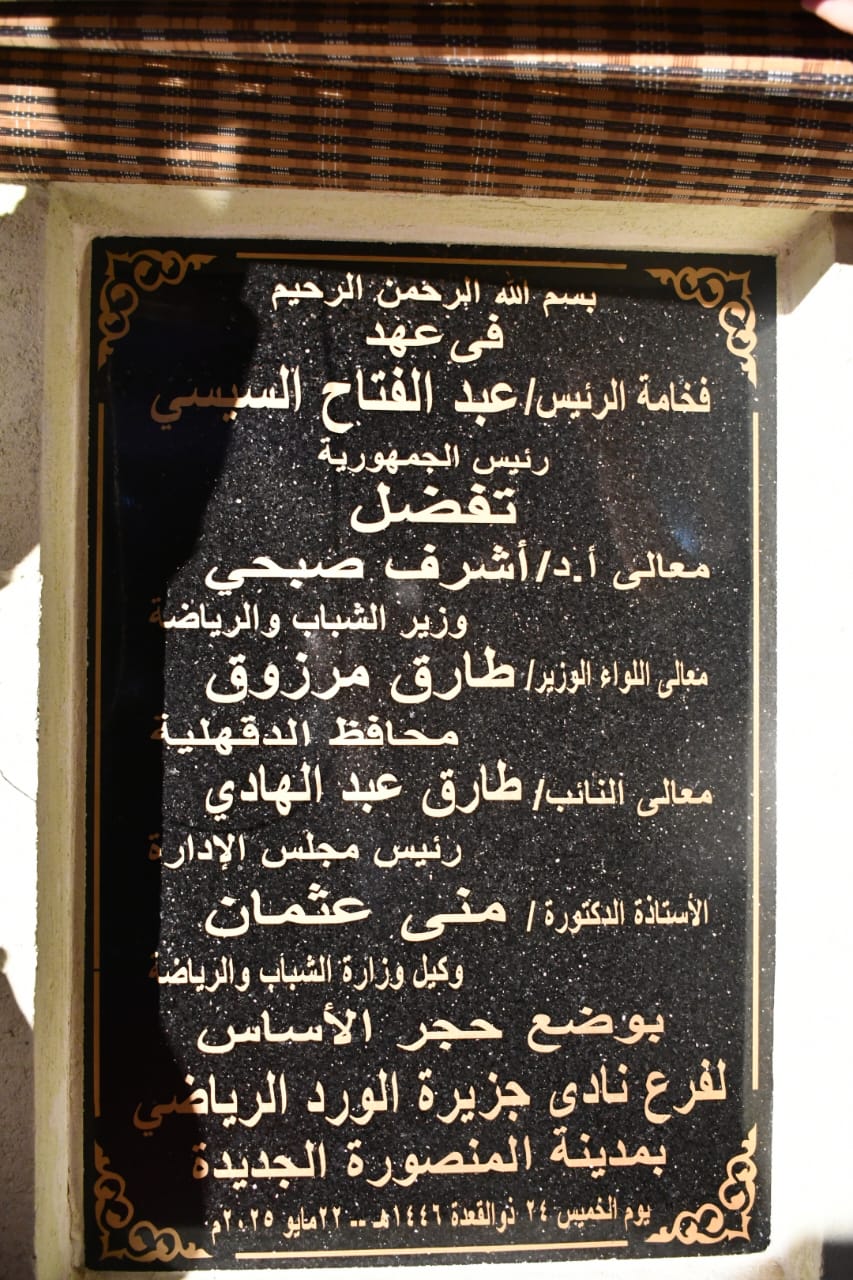 بسم الله الرحمن الرحيم
فى عهد
فخامة الرئيس/ عبد الفتاح السيسي
رئيس الجمهورية
تفضل
معالى أ.د/ أشرف صبحي
وزير الشباب والرياضة
معالى اللواء الوزير/ طارق مرزوق
محافظ الدقهلية
معالى النائب/ طارق عبد الهادي
رئيس مجلس الإدارة
الأستاذة الدكتورة / منى عثمان
وكيل وزارة الشباب والرياضة
بوضع حجر الأساس
لفرع نادى جزيرة الورد الرياضي
بمدينة المنصورة الجديدة
يوم الخميس ٢٤ ذوالقعدة ١٤٤٦هـ -- ٢٢مايو ٢٠٢٥م